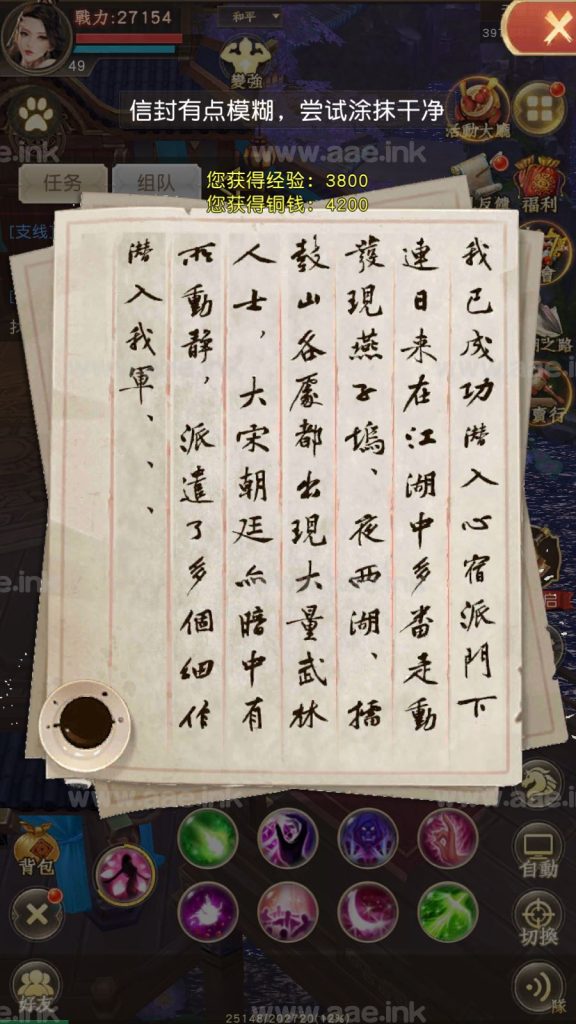 戰力:27154
和平
49
變強
信封有点模糊，尝试涂抹干净
活動大廳
www.aae.ink
任务
组队
您获得经验：3800
您获得铜钱：4200
反饋
福利
[支线]
賣行
我已成功潛入心宿派門下
連日来在江湖中多番走動
發現燕子塢、夜西湖、擂
鼓山各處都出現大量武林
人士，大宋朝廷亦暗中有
所動靜，派遣了多個细作
潛入我軍、、、
www.aae.ink
背包
自動
切換
好友
隊
25148/202720(12%)
www.aae.ink